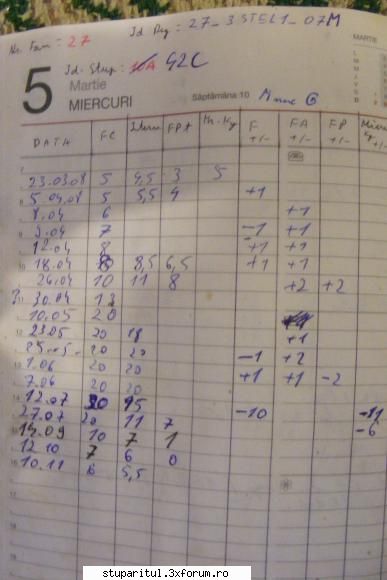 Nr. Fam: 27 Id Reg: 27_3STEL1_07M
MARTIE
Id-Stup: 42C
5 Martie
MIERCURI Săptămâna 10
DATA FC FPt F +/- FA +/- FP +/- +/-
23.03.08 5 4,5 3 5
5.04.08 5 5,5 4 +1
8.04 6 +1
9.04 7 -1 +1
12.04 8 +1 +1
18.04 8 8,5 6,5 +1 +1
26.04 10 11 8 +2 +2
30.04
10.05 20
23.05 20 18 +1
25.05 20 20 -1 +2
1.06 20 20 +1 +1 -2
7.06 20 20
12.07 20 15
27.07 20 11 7 -10 -11
15.09 10 7 1 -6
12.10 7 6 0
10.11 6 5,5
stuparitul.3xforum.ro